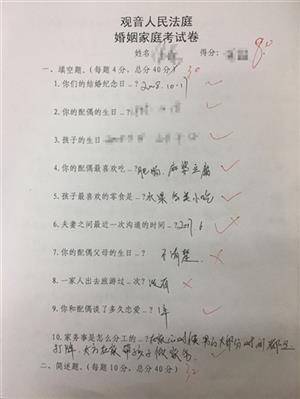 观音人民法庭
婚姻家庭考试卷
姓名 得分： 80
一、填空题。（每题4分，总分40分） 30
1.你们的结婚纪念日…？ 2008.10.17
2.你的配偶的生日…？
3.孩子的生日…？
4.你的配偶最喜欢吃…？ 肥肠，麻婆豆腐
5.孩子最喜欢的零食是…？ 水果 各类小吃
6.夫妻之间最近一次沟通的时间…？ 2017 6
7.你的配偶父母的生日…？ 不清楚
8.一家人出去旅游过…次？ 没有
9.你和配偶谈了多久恋爱…？ 1年
10.家务事是怎么分工的…？ 在家的时候 大部分时间都是
打牌，在家带孩子做家务
二、简述题。（每题10分，总分40分） 32